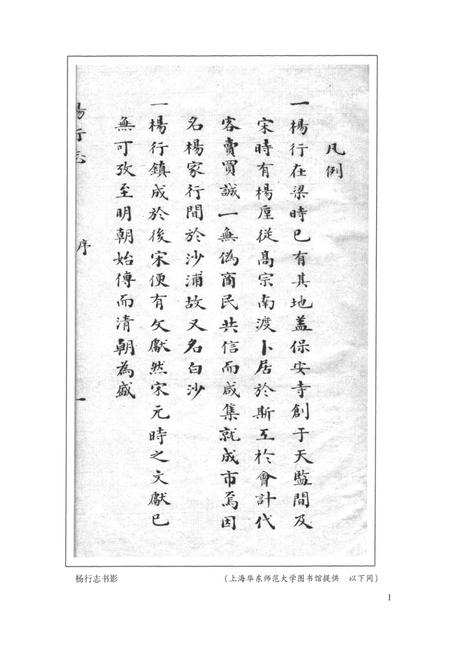 凡例
一楊行在梁時已有其地蓋保安寺創于天監間及
宋時有楊厓從髙宗南渡卜居於斯工於會計代
客賣買誠一無偽商民共信而咸集就成市焉因
名楊家行間於沙浦故又名白沙
一楊行鎮成於後宋便有文獻然宋元時之文獻已
無可攷至明朝始傳而清朝為盛
楊行志
序
一
杨行志书影
(上海华东师范大学图书馆提供 以下同)
1